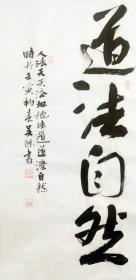 道法自然
人法天天法地地法道道法自然
時於壬寅初春書